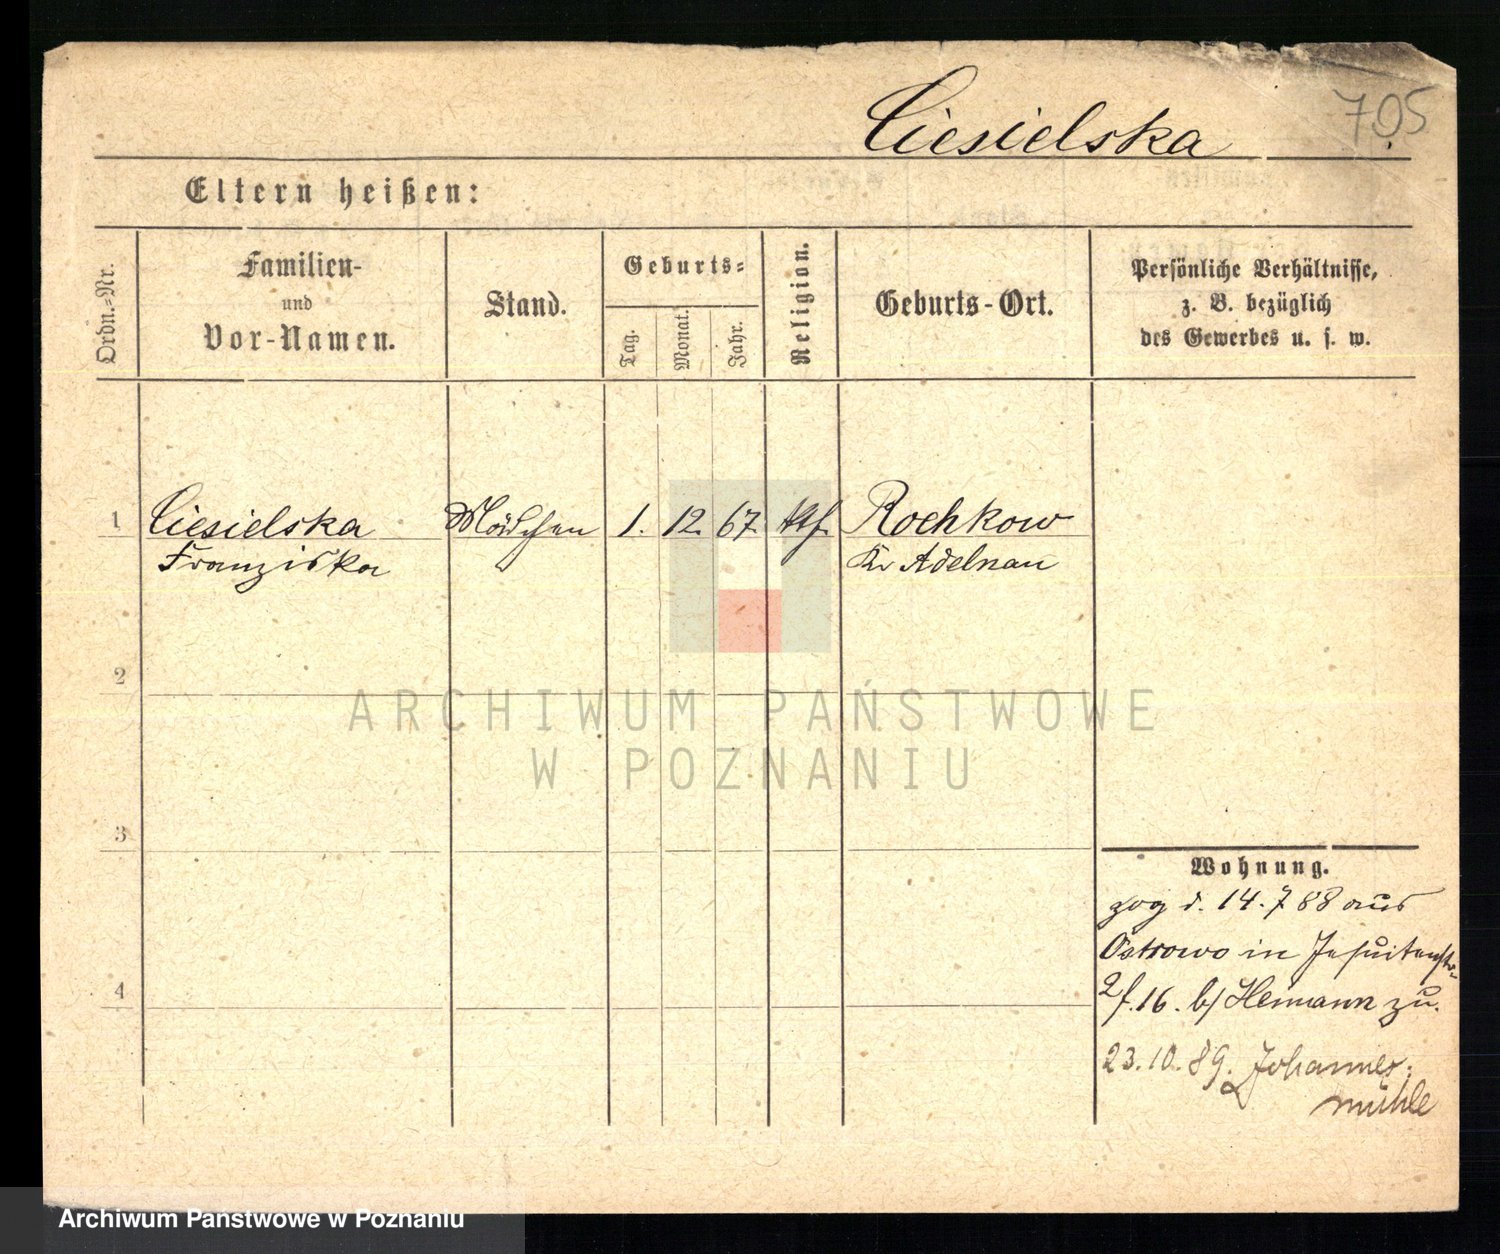 Ciesielska
705
Eltern heißen:
Ordn.-Nr.
Familien-
und
Vor-Namen.
Stand.
Geburts-
Tag.
Monat.
Jahr.
Religion.
Geburts-Ort.
Persönliche Verhältnisse,
z. B. bezüglich
des Gewerbes u. s. w.
1 Ciesielska Mädchen 1. 12. 67. ktf. Rochkow
Franziska Kr Adelnau
2
ARCHIWUM PAŃSTWOWE
W POZNANIU
3
Wohnung.
zog d. 14.7 88 aus
Ostrowo in Jesuitenstr.
4
16. b/ Hermann zu.
23.10.89. Johannes-
mühle
Archiwum Państwowe w Poznaniu